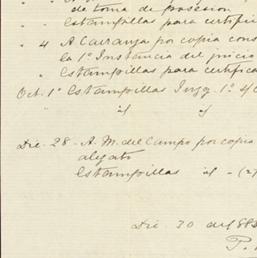 " " de toma de posesion
" " Estampillas para certific
" 4 A Carranza por copia cons
la 1ª Instancia del juicio
" Estampillas para certifica
Oct. 1º Estampillas Juzg. 1º 4º C
" id id
Dic. 28 - A. M. del Campo por copia
alegato
Estampillas id - (2
Dic 30 del 188
P.